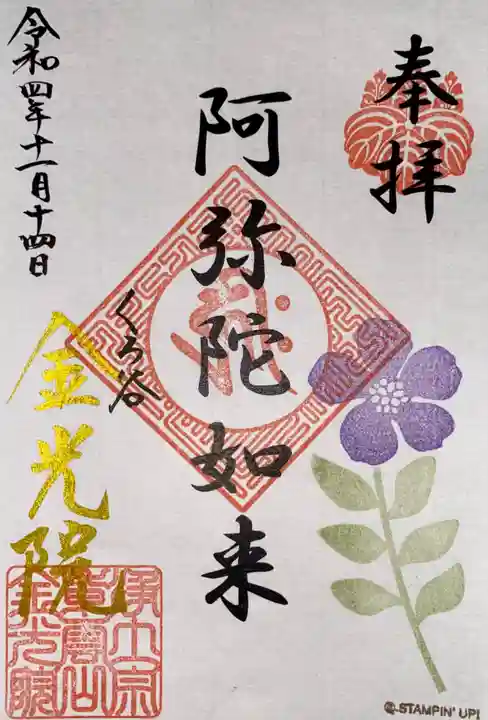 奉拝
阿弥陀如来
くろ谷
令和四年十一月十四日
金光院
浄土宗
紫雲山
金光院
STAMPIN' UP!